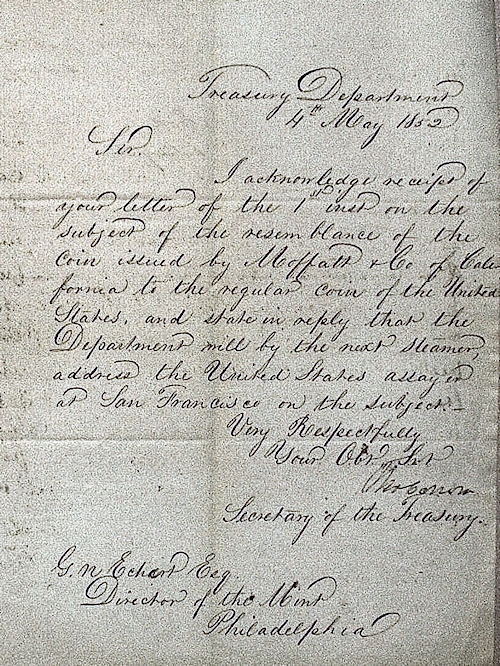 Treasury Department
4th May 1852
Sir.
I acknowledge receipt of
your letter of the 1st inst on the
subject of the resemblance of the
Coin issued by Moffatt & Co of Cali
fornia to the regular coin of the United
States, and state in reply that the
Department will by the next steamer,
address the United States assayer
at San Francisco on the subject._
Very Respectfully
Your Obt Svt
Secretary of the Treasury.
G. N Eckert Esq
Director of the Mint
Philadelphia